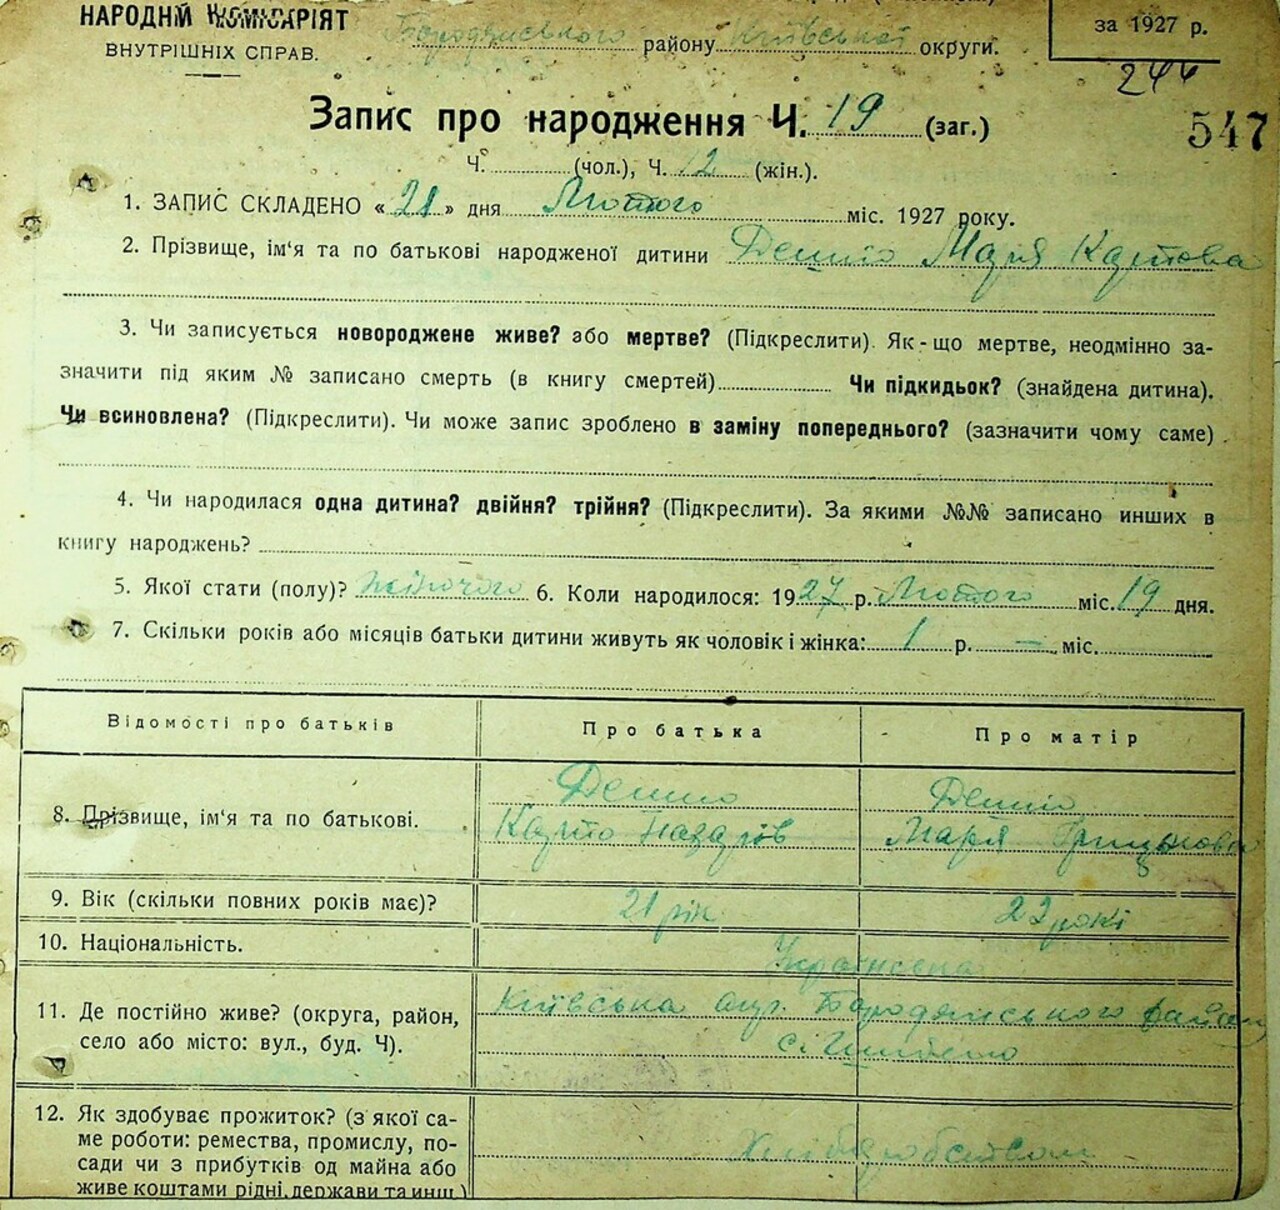 НАРОДНІЙ КОМІСАРІЯТ
ВНУТРІШНІХ СПРАВ.
Бородянського району Київської округи.
за 1927 р.
244
547
Запис про народження Ч. 19 (заг.)
Ч. (чол.), Ч. 12 (жін.).
1. ЗАПИС СКЛАДЕНО « 21 » дня Лютого міс. 1927 року.
2. Прізвище, ім‘я та по батькові народженої дитини Марія Карпова
3. Чи записується новороджене живе? або мертве? (Підкреслити). Як-що мертве, неодмінно за-
значити під яким № записано смерть (в книгу смертей) Чи підкидьок? (знайдена дитина).
Чи всиновлена? (Підкреслити). Чи може запис зроблено в заміну попереднього? (зазначити чому саме)
4. Чи народилася одна дитина? двійня? трійня? (Підкреслити). За якими №№ записано инших в
книгу народжень?
5. Якої стати (полу)? жіночого 6. Коли народилося: 1927 р. Лютого міс. 19 дня.
7. Скільки років або місяців батьки дитини живуть як чоловік і жінка: 1 р. — міс.
Відомості про батьків Про батька Про матір
8. Прізвище, ім‘я та по батькові.
Карпо Назарів Марія
9. Вік (скільки повних років має)? 21 рік 22 роки
10. Національність. Українська
11. Де постійно живе? (округа, район,
село або місто: вул., буд. Ч).
Київська окр. Бородянського району
12. Як здобуває прожиток? (з якої са-
ме роботи: ремества, промислу, по-
сади чи з прибутків од майна або
живе коштами рідні, держави та инш.)
Хліборобством